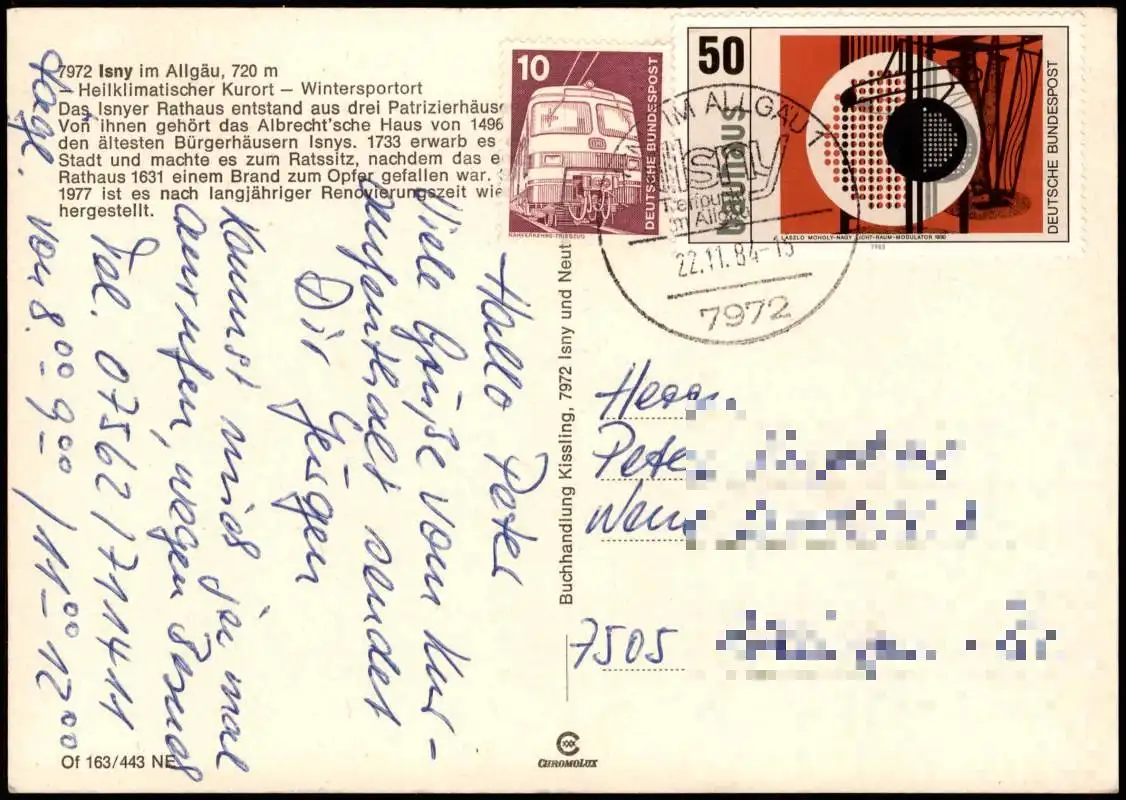 7972 Isny im Allgäu, 720 m
— Heilklimatischer Kurort – Wintersportort
Das Isnyer Rathaus entstand aus drei Patrizierhäuse
Von ihnen gehört das Albrecht'sche Haus von 1496
den ältesten Bürgerhäusern Isnys. 1733 erwarb es
Stadt und machte es zum Ratssitz, nachdem das e
Rathaus 1631 einem Brand zum Opfer gefallen war.
1977 ist es nach langjähriger Renovierungszeit wie
hergestellt.
Hallo Peter
Viele Grüße vom Kur-
aufenthalt sendet
Dir
Jürgen
Kannst mich ja mal
anrufen, wegen
Tel. 07562/71411
von 8.00 9.00 / 11.00 - 12.00
Of 163/443 NE
Buchhandlung Kissling, 7972 Isny und Neut
CHROMOLUX
10
DEUTSCHE BUNDESPOST
NAHVERKEHRS-TRIEBZUG
50
bauhaus
DEUTSCHE BUNDESPOST
LASZLO MOHOLY-NAGY LICHT-RAUM-MODULATOR 1930
1983
IM ALLGÄU 1
Isny
Treffpunkt
im Allgäu
22.11.84-15
7972
Herrn
Pete
7505